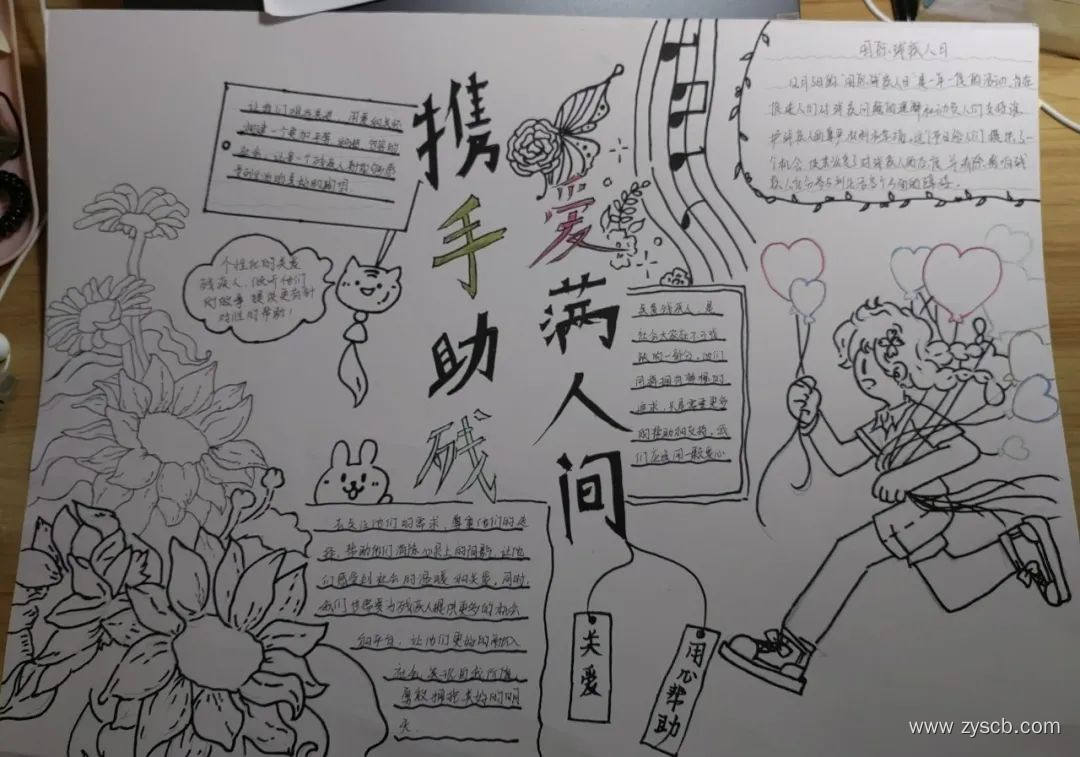 携手助残
爱满人间
国际残疾人日
12月3日的"国际残疾人日"是一年一度的活动,旨在
促进人们对残疾问题的理解和动员人们支持维
护残疾人的尊严、权利和幸福,这个节日给人们提供了一
个机会
让我们
构建一个更加平等、和谐、包容的
社会,让每一个残疾人都能够感
受到
美好的
个性化的关爱
残疾人,倾听他们
的故事,提供更有针
对性的帮助!
关爱残疾人,是
社会大家庭不可或
缺的一部分,他们
同样拥有
追求,只是需要更多
的帮助和支持,我
们应该用一颗爱心
去关注他们的需求,尊重他们的选
择,帮助他们消除心灵上的阴影,让他
们感受到社会的温暖和关爱,同时,
我们也需要为残疾人提供更多的机会
和平台,让他们更好的融入
社会,实现自我价值,
勇敢拥抱美好的明
天.
关爱
用心帮助
www.zyscb.com